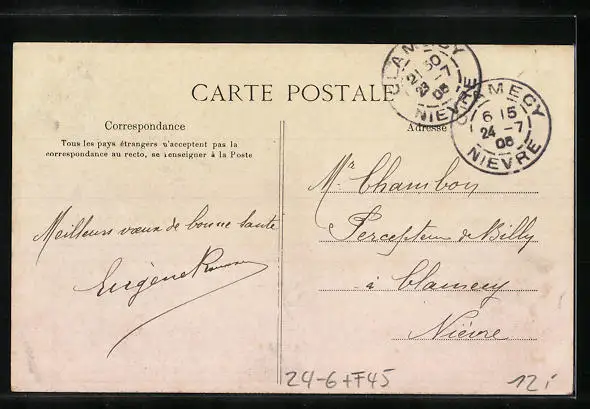 CARTE POSTALE
Correspondance
Tous les pays étrangers n'acceptent pas la
correspondance au recto, se renseigner à la Poste
Adresse
CLAMECY
21 30
23 - 7
06
NIEVRE
CLAMECY
6 15
24 - 7
06
NIEVRE
Meilleurs vœux de bonne santé
Eugène
Mr Chambon
Percepteur de Billy
à Clamecy
Nièvre
24-6+F45
12,-